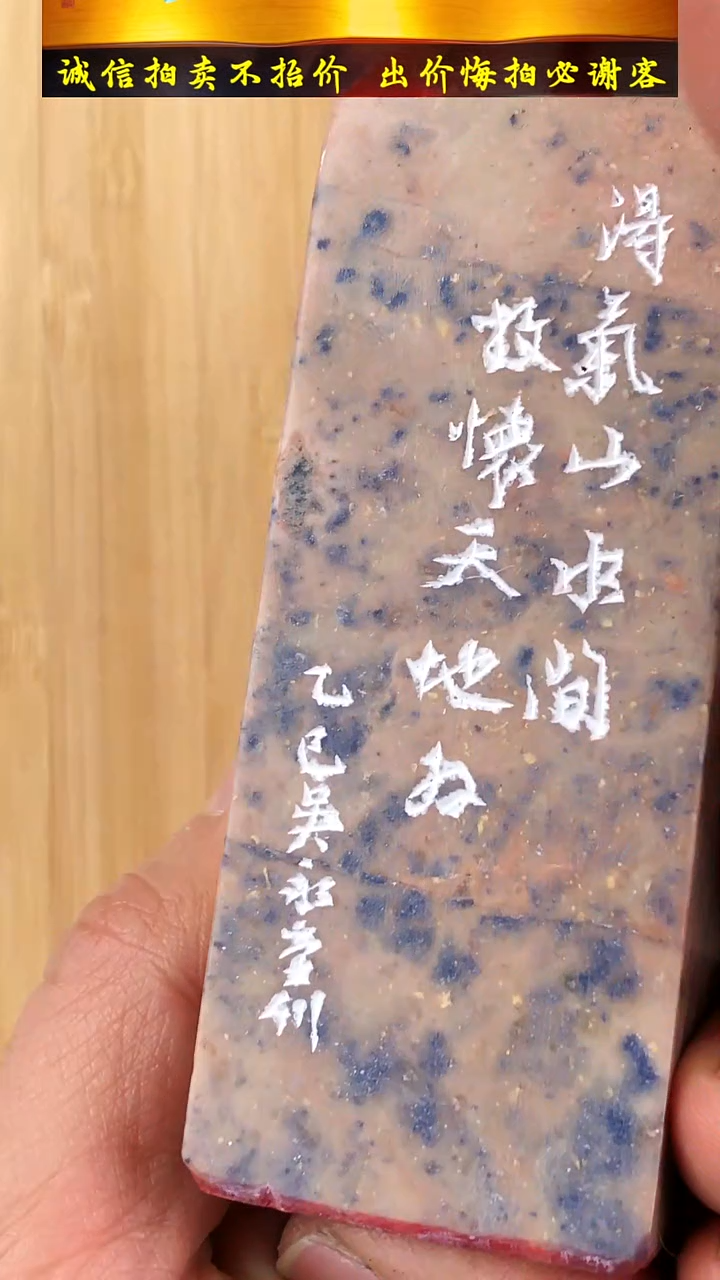 诚信拍卖不抬价 出价悔拍必谢客
得氣山水间
放懷天地外
乙巳吴永